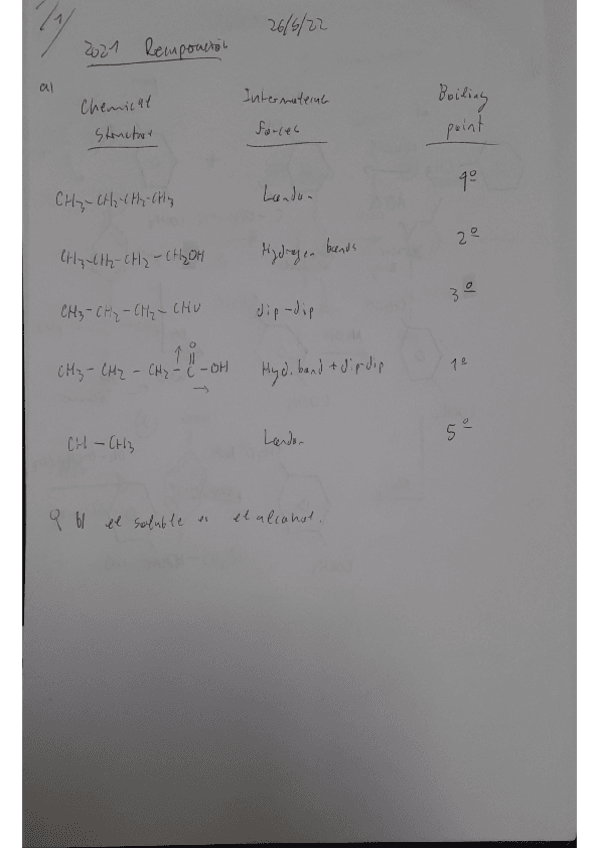 1/
26/5/22
2021 Recuperación
a)
Chemical Intermolecular Boiling
structure forces point
CH3-CH2-CH2-CH3 London 4º
CH3-CH2-CH2-CH2OH Hydrogen bonds 2º
CH3-CH2-CH2-CHO dip-dip 3º
O
CH3-CH2-CH2-C-OH Hyd. bond + dip-dip 1º
CH-CH3 London 5º
b) el soluble es el alcohol.